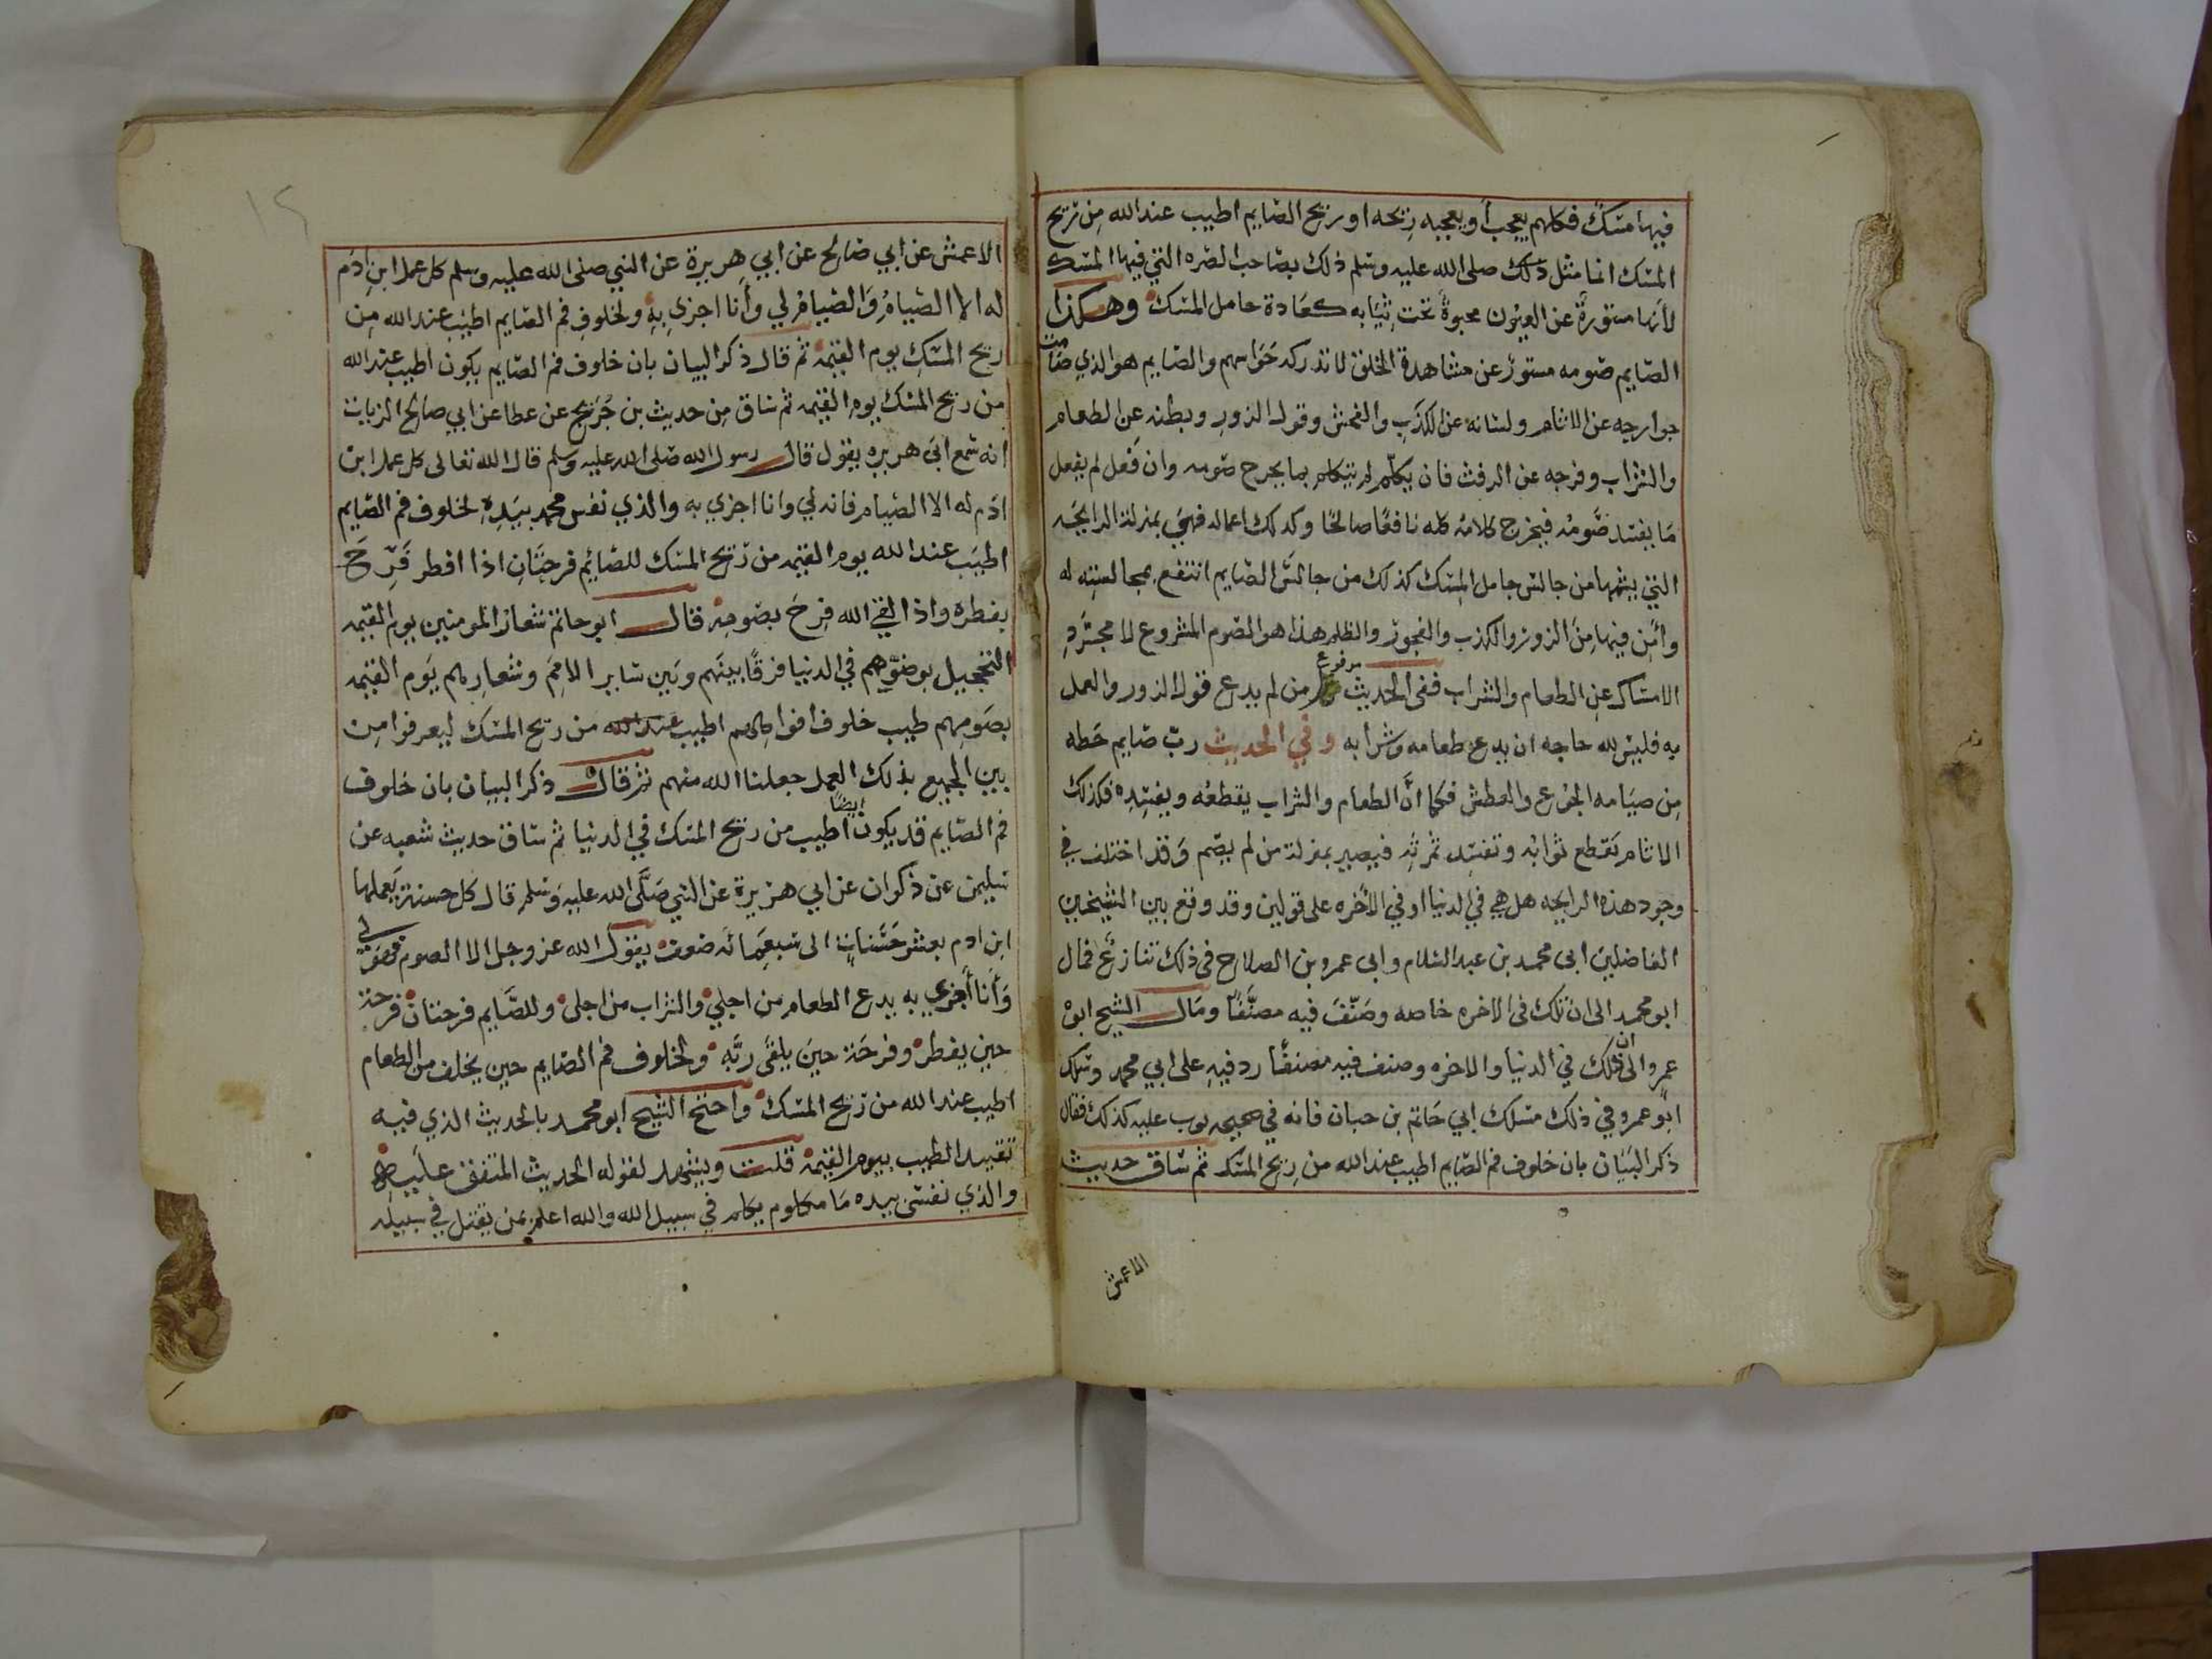 فيها مسك فكلهم يعجب أو يعجبه ريحه او ريح الصايم اطيب عند الله من ريح
المسك انما مثل ذلك صلى الله عليه وسلم ذلك بصاحب الصره التي فيها المسك
لأنها مستورةٌ عن العيون محبوةً تحت ثيابه كعادة حامل المسك وهكذا
الصايم صومه مستورٌ عن مشاهدة الخلق لا تدركه حواسهم والصايم هو الذي صامت
جوارحه عن الاثام ولسانه عن الكذب والفحش وقول الزور وبطنه عن الطعام
والشراب وفرجه عن الرفث فان يكلم لم يتكلم بما يجرح صومه وان فعل لم يفعل
ما يفسد صومه فيخرج كلامه كله نافعًا صالحًا وكدلك اعماله فهي بمنزلة الرايحه
التي يشمها من جالس حامل المسك كذلك من جالس الصايم انتفع بمجالسته له
وأمن فيها من الزور والكذب والفجور والظلم هذا هو الصوم المشروع لا مجرد
الامساك عن الطعام والشراب ففي الحديث مرفوع من لم يدع قول الزور والعمل
به فليس لله حاجه ان يدع طعامه وشرابه وفي الحديث ربّ صايم حظه
من صيامه الجوع والعطش فكما انَّ الطعام والشراب يقطعه ويفسده فكذلك
الاثام تقطع ثوابه وتفسد ثمرته فيصير بمنزلة من لم يصم وقد اختلف في
وجود هذه الرايحه هل هي في الدنيا او في الآخره على قولين وقد وقع بين الشيخين
الفاضلين ابى محمد بن عبد السلام وابى عمرو بن الصلاح في ذلك تنازعٌ فمال
ابو محمد الى ان تلك في الاخره خاصه وصنّف فيه مصنَّفًا ومال الشيخ ابوْ
عمرو الى ان ذلك في الدنيا والاخره وصنف فيه مصنفًا رد فيه على ابي محمد وسلك
ابو عمرو في ذلك مسلك ابي حاتم بن حبان فانه في صحيحه بوب عليه كذلك فقال
ذكر البيان بان خلوف فم الصايم اطيب عند الله من ريح المسك ثم ساق حديث
الاعمش
١٢
الاعمش عن ابي صالح عن ابي هريرة عن النبي صلى الله عليه وسلم كل عمل ابن ادم
له الا الصيام والصيام لي وأنا اجزي به ولخلوف فم الصايم اطيب عند الله من
ريح المسك يوم القيمة ثم قال ذكر البيان بان خلوف فم الصايم يكون اطيب عند الله
من ريح المسك يوم القيمه ثم ساق من حديث بن جريج عن عطا عن ابي صالح الزيات
انه سمع ابى هريره يقول قال رسول الله صلى الله عليه وسلم قال الله تعالى كل عمل ابن
ادم له الا الصيام فانه لي وانا اجزي به والذي نفس محمد بيده لخلوف فم الصايم
اطيب عند الله يوم القيمه من ريح المسك للصائم فرحتان اذا افطر فرح
بفطره واذا لقي الله فرح بصومه قال ابو حاتم شعار المومنين يوم القيمه
التحجيل بوضوهم في الدنيا فرقًا بينهم وبين ساير الامم وشعارهم يوم القيمه
بصومهم طيب خلوف افواههم اطيب عند الله من ريح المسك ليعرفوا من
بين الجميع بذلك العمل جعلنا الله منهم ثم قال ذكر البيان بان خلوف
فم الصايم قد يكون أيضًا اطيب من ريح المسك في الدنيا ثم ساق حديث شعبه عن
سليمن عن ذكوان عن ابي هريرة عن النبي صلَّى الله عليه وسلم قال كل حسنة يعملها
ابن ادم بعشر حسنات الى سبعمائه ضعف يقول الله عز وجل الا الصوم فهو لي
وأنا أجزي به يدع الطعام من اجلي والشراب من اجلى وللصَّايم فرحتان فرحة
حين يفطر وفرحة حين يلقى ربَّه ولخلوف فم الصايم حين يخلف من الطعام
اطيب عند الله من ريح المسك واحتج الشيخ ابو محمد بالحديث الذي فيه
تقييد الطيب بيوم القيمة قلت ويشهد لقوله الحديث المتفق عليه
والذي نفسي بيده ما مكلوم يكلم في سبيل الله والله اعلم بمن يقتل في سبيله